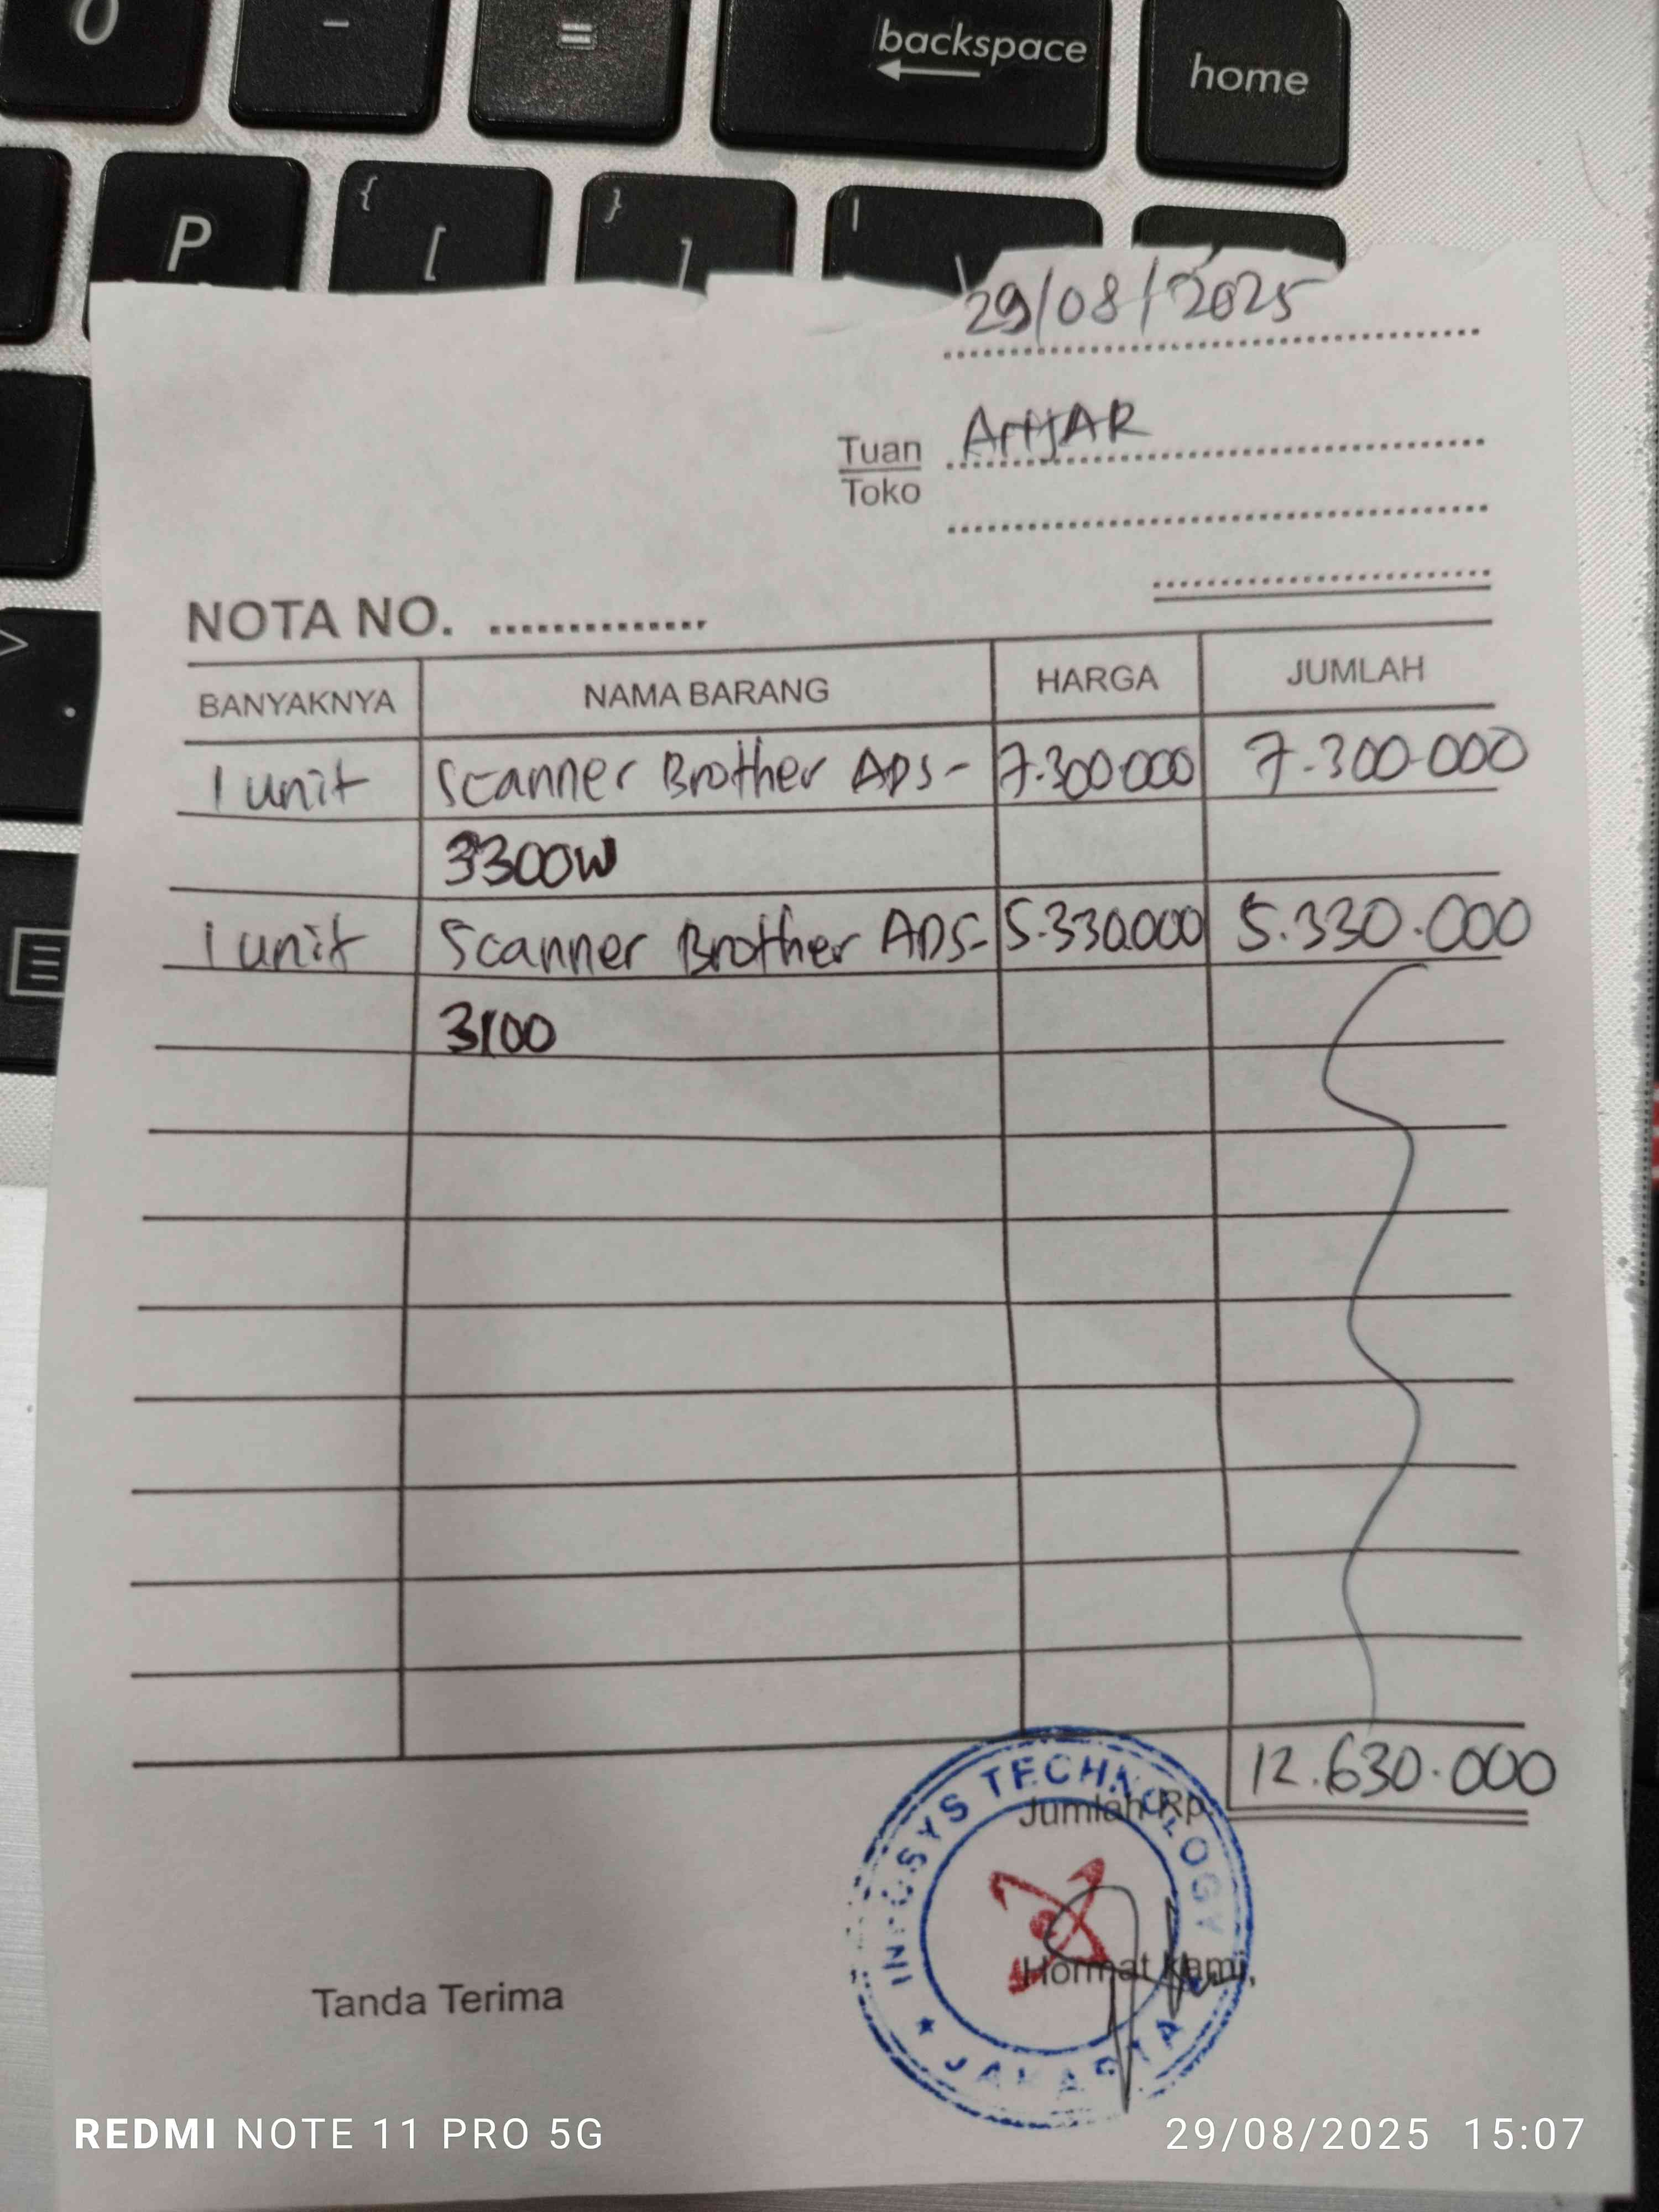 0 - = backspace home
P { [ } ] | \
>
.
29/08/2025
Tuan
Toko
NOTA NO. ..............
BANYAKNYA NAMA BARANG HARGA JUMLAH
1 unit Scanner Brother ADS- 7.300.000 7.300.000
3300W
1 unit Scanner Brother ADS- 5.330.000 5.330.000
3100
12.630.000
Jumlah Rp.
INFOSYS TECHNOLOGY
Hormat kami,
Tanda Terima
★ JAKARTA
REDMI NOTE 11 PRO 5G 29/08/2025 15:07